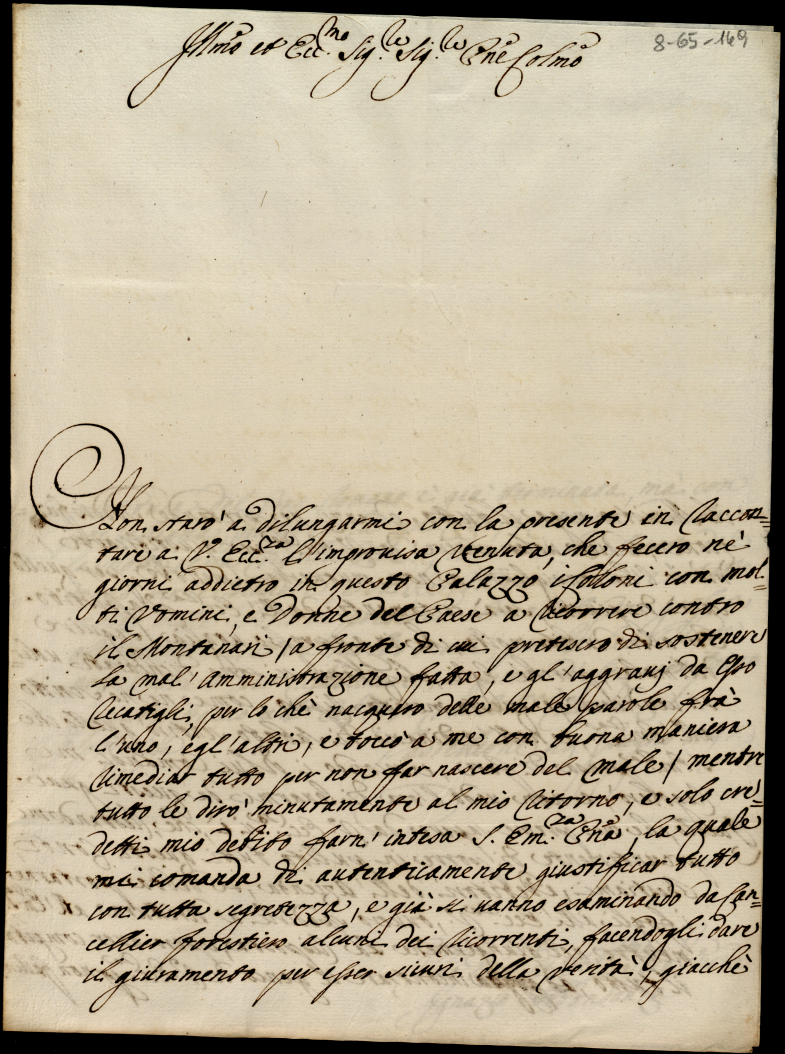 8-65-149
Illmo et Ecc.mo Sig.re Sig.re Pne Colmo
Non starò a dilungarmi con la presente in raccon=
tare a V. Ecc.za l'improvisa venuta, che fecero nè
giorni addietro in questo Palazzo i Colloni con mol=
ti Vomini, e Donne del Paese a ricorrere contro
il Montanari / a fronte di cui pretesero di sostenere
la mal'amministrazione fatta, e gl'aggravj da Esso
recatigli, per lo chè nacquero delle male parole frà
l'uno, e gl'altri, e toccò a me con buona maniera
rimediar tutto per non far nascere del male / mentre
tutto le dirò minutamente al mio ritorno, e solo cre=
detti mio debito farn'intesa S. Em.za Pna, la quale
mi comanda di autenticamente giustificar tutto
con tutta segretezza, e già si vanno esaminando da Can=
cellier forestiero alcuni dei ricorrenti, facendogli dare
il giuramento per esser sicuri della verità, giacchè